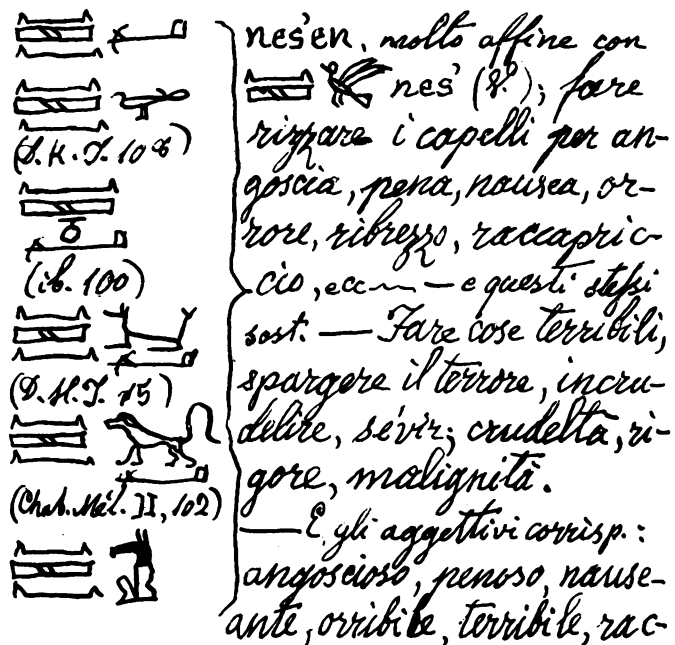 nes'en, molto affine con
nes' (V.); fare
rizzare i capelli per an-
goscia, pena, nausea, or-
rore, ribrezzo, raccapric-
cio, ecc — e questi stessi
sost. — Fare cose terribili,
spargere il terrore, incru-
delire, sévir; crudeltà, ri-
gore, malignità.
— E gli aggettivi corrisp.:
angoscioso, penoso, nause-
ante, orribile, terribile, rac-
(ib. 100)
(D.H.I. 15)
(Chab. Mél. II, 102)